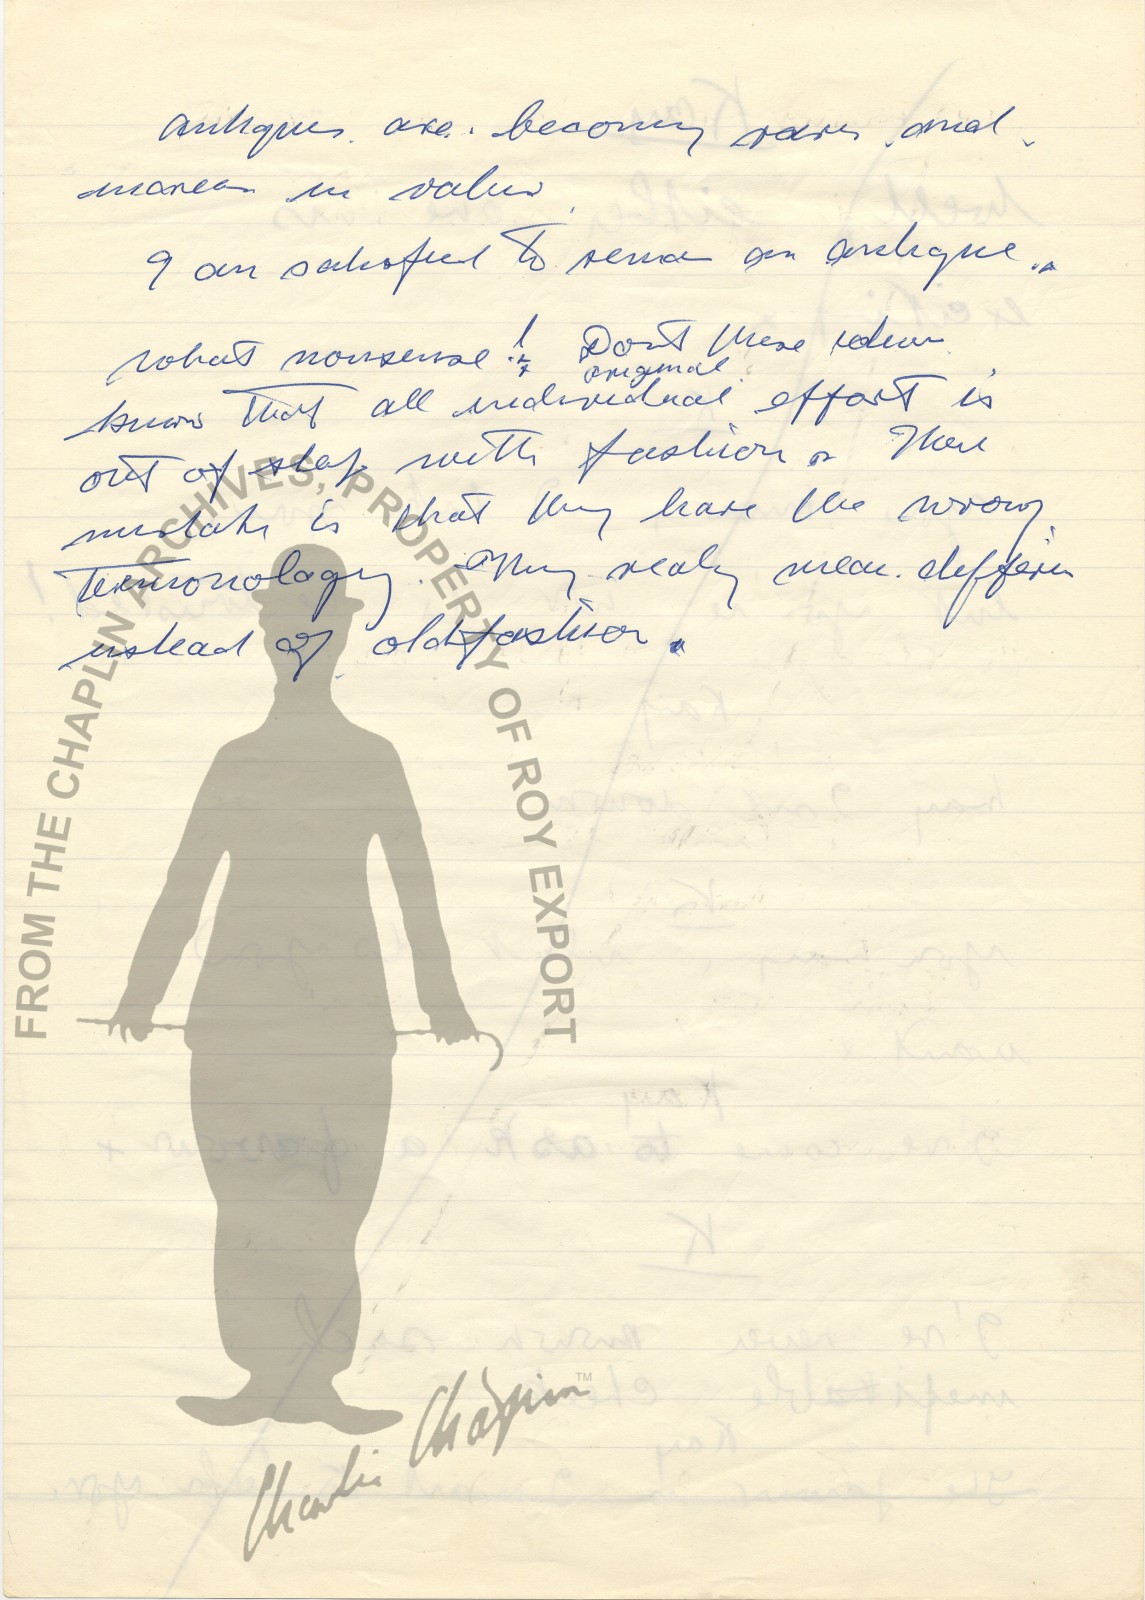 antiques are becoming rarer and
increase in value.
I am satisfied to remain an antique..
what nonsense! Dont these
original
know that all individual effort is
out of step with fashion. Their
mistake is that they have the wrong
termonology. They realy mean differen
instead of old fashion.
FROM THE CHAPLIN ARCHIVES, PROPERTY OF ROY EXPORT
Charlie Chaplin TM